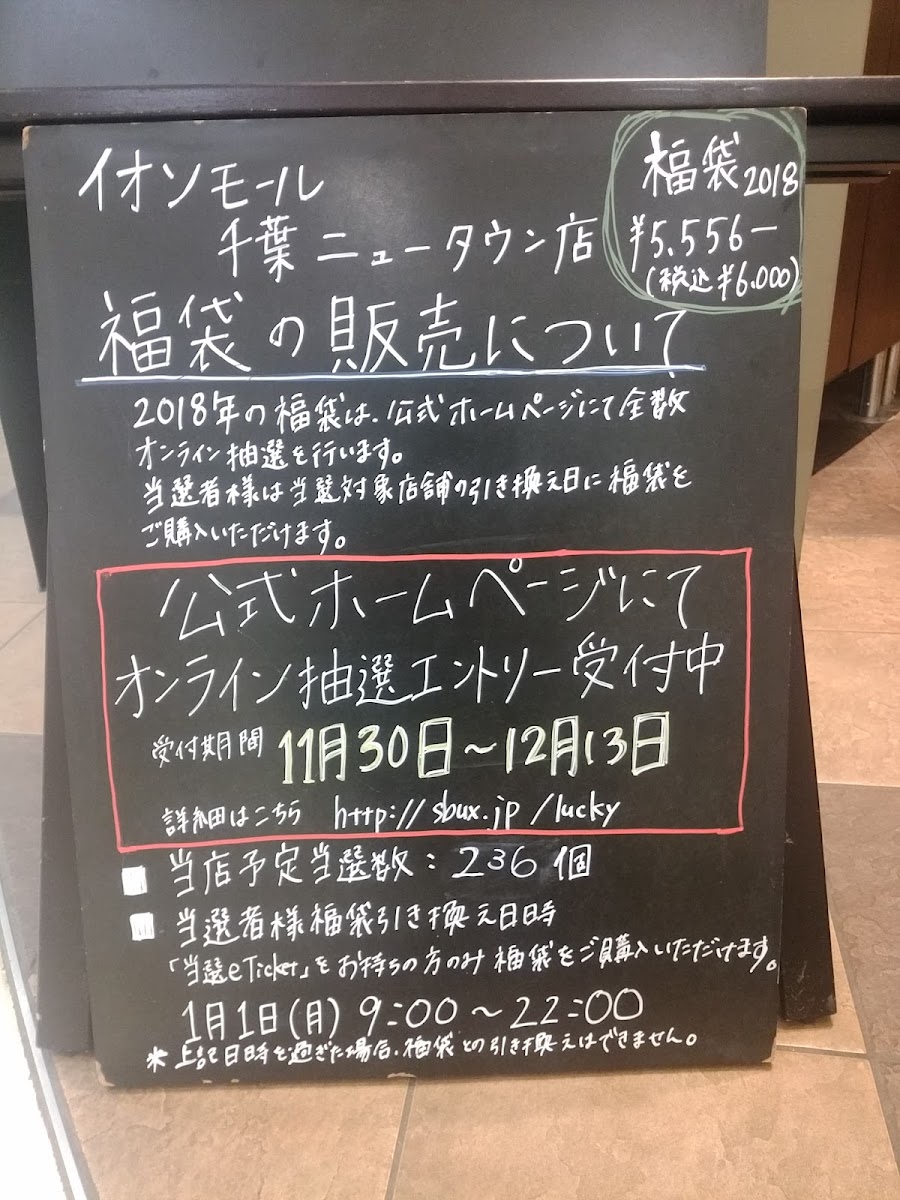 イオンモール
千葉ニュータウン店
福袋2018
¥5.556-
(税込¥6.000)
福袋の販売について
2018年の福袋は、公式ホームページにて全数
オンライン抽選を行います。
当選者様は当選対象店舗の引き換え日に福袋を
ご購入いただけます。
公式ホームページにて
オンライン抽選エントリー受付中
受付期間 11月30日~12月13日
詳細はこちら http://sbux.jp/lucky
当店予定当選数:236個
当選者様福袋引き換え日時
「当選eTicket」をお持ちの方のみ福袋をご購入いただけます。
1月1日(月)9:00~22:00
*上記日時を過ぎた場合、福袋との引き換えはできません。